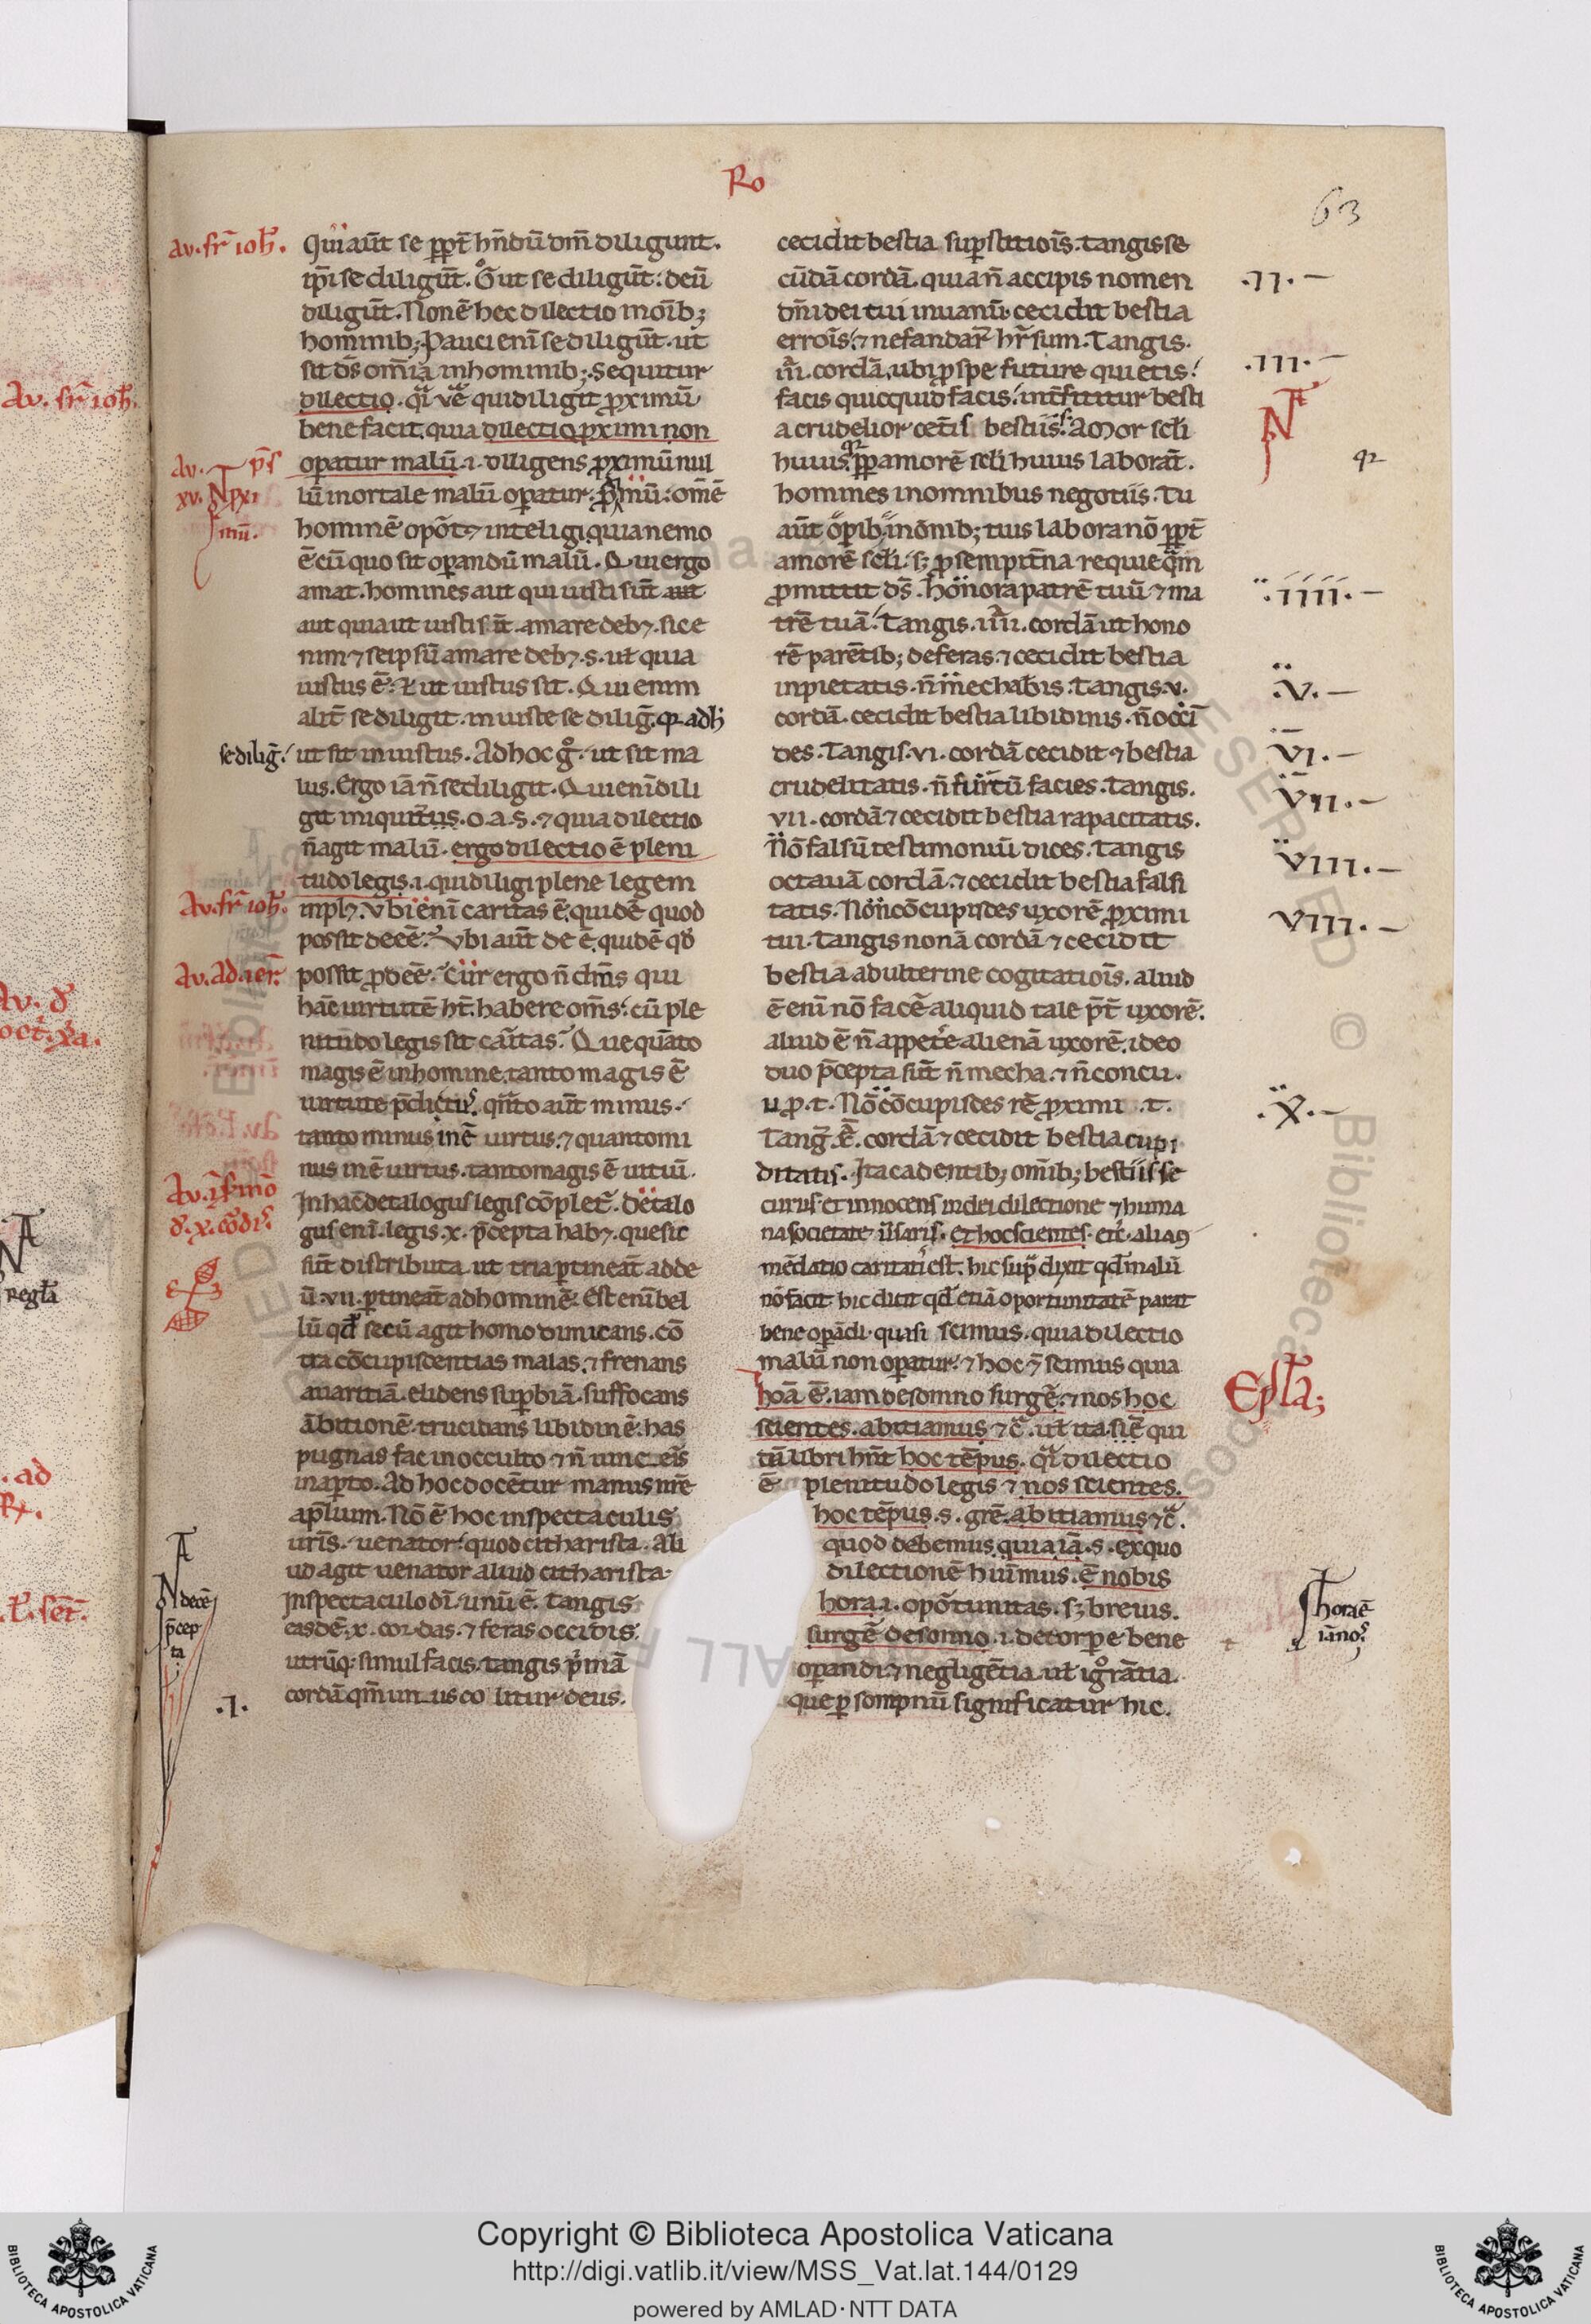 Ro
63
Av. fr̄ ioħ.
Quı aūt se ꝓpt̄ hn̄dū dm̄ diligunt.
ip̄i se diligūt. G̊ ut se diligūt: deū
diligūt. Non ē hec dilectio in oīb;
hominib; Pauci eni se diligūt. ut
sit ds̄ omīa in hominib;. Sequitur
dilectio. qͥ ve qui diligit ꝓximū
bene facit. quia dilectio ꝓximi non
operatur malū .i. diligens ꝓximū nul
lū mortale malū operatur. ꝓ̄mū: om̄ē
hominē opōt & inteligi. quia nemo
ē cū quo sit operandū malū. Qui ergo
amat. homines aut qui iusti sūt aut
aut quia ut iusti sīt. amare deb&. sic e
nim & seip sū amare deb& .s. ut quia
iustus ē: ł ut iustus sit. Qui enim
alit̄ se diligit. iniuste se diliḡ. qr adh̄
se diliḡ.
ut sit iniustus. Ad hoc g̊. ut sit ma
lus. Ergo iā n̄ se diligit. Qui enī dili
git iniquitatē. o. a. s. & quia dilectio
n̄ agit malū. ergo dilectio ē pleni
tudo legis .i. qui diligi plene legem
Av. fr̄ ioħ.
impl&. Ubi enī caritas ē. quid ē quod
possit deeē. Ubi aūt de ē. quid ē qd̄
Av. ad ier̄.
possit ꝓdeē. Cur ergo n̄ dm̄s qui
hāc uirtutē hn̄t. habere om̄s. cū ple
nitudo legis sit cātas. Que quāto
magis ē in homine. tanto magis ē
uirtute p̄dictus. qn̄to aūt minus.
tanto minus inē uirtus. & quanto mi
nus inē uirtus. tanto magis ē uitiū.
Av. ī ſmō
In hac detalogus legis cōplet̄. detalo
d̄. x. cōdis.
gus eni legis. x. p̄cepta hab&. que sic
sūt distributa ut tria ꝑtineāt ad de
ū. vii. ꝑtineāt ad hominē. Est enī bel
lū qd̄ secū agit homo dimicans. cō
tra cōcupiscentias malas. & frenans
auaritiā. elidens superbiā. suffocans
ābitionē. trucidans libidinē. has
pugnas fac in occulto & n̄ uinceris
in aperto. Ad hoc docētur manus nr̄e
ap̄lium. Nō ē hoc in spectaculis
uris. uenator. quod citharista. Ali
ud agit uenator aliud citharista.
In spectaculo dī. unū ē. tangis
easdē. x. cordas. & feras occidis.
utrūq; simul facis. tangis p̄mā
cordā qm̄ unus colitur deus.
cecidit bestia superstitiōis. tangis se
cūdā cordā. quia n̄ accipis nomen
dn̄i dei tui in uanū. cecidit bestia
errōis. & nefandar̄ hr̄sum. Tangis.
iii. cordā. ubi ꝓ spe future quietis.
facis quicquid facis. int̄ficitur besti
a crudelior cet̄is bestiis. Amor seli
huius. ꝓpt̄ amorē seli huius laborāt.
homines in omnibus negotiis. Tu
aūt opib; in oīnib; tuis labora nō ꝓpt̄
amorē seli. s; ꝓ sempit̄na requie qm̄
ꝓmittit ds̄. honora patrē tuū & ma
trē tuā. Tangis. iiii. cordā ut hono
rē parētib; deferas. & cecidit bestia
inpietatis. n̄ mechabis. Tangis. v.
cordā. cecidit bestia libidinis. n̄ occi
des. Tangis. vi. cordā cecidit & bestia
crudelitatis. n̄ furtū facies. Tangis.
vii. cordā & cecidit bestia rapacitatis.
Nō falsū testimoniū dices. tangis
octauā cordā. & cecidit bestia falsi
tatis. Non cōcupisces uxorē ꝓximi
tui. Tangis nonā cordā & cecidit
bestia adulterine cogitatiōis. aliud
ē enī nō facē aliquid tale p̄t uxorē.
aliud ē n̄ appetere alienā uxorē. ideo
duo p̄cepta sūt n̄ mecha. & n̄ concu.
u. p. t. Nō cōcupisces rē ꝓximi .t.
Tang̃. x̄. cordā & cecidit bestia cupi
ditatis. Ita cadentib; omīb; bestiis se
curus. et innocens in dei dilectione & huma
na societate ūsaris. et hoc scientes. etc̄. alia ꝯ
mēdatio caritatis est. hic sup̄ dixit qd̄ malū
nō facit. hic dicit qd̄ etiā oportunitatē parat
bene operādi. quasi scimus. quia dilectio
malū non operatur. & hoc & scimus quia
hora ē. iam de somno surgē. & nos hoc
scientes. abitiamus & c̄. ut ita. siē qui
tū libri hn̄t hoc tēpus. qͥ dilectio
ē plenitudo legis & nos scientes.
hoc tēpus .s. grē. abitiamus & c̄.
quod debemus. quia iā .s. ex quo
dilectionē huīmus. ē nobis
hora .i. opōtunitas. s; breuis.
surgē de somno .i. de torpe bene
operandi. & negligētia. ut igrātia.
que ꝑ sompnū significatur hic.
.II.
.III.
.IIII.
.V.
VI.
VII.
VIII.
VIIII.
.X.
Epła;
horaē
iāno.
decē
p̄cep
ta
.I.
Copyright © Biblioteca Apostolica Vaticana
http://digi.vatlib.it/view/MSS_Vat.lat.144/0129
powered by AMLAD·NTT DATA
BIBLIOTECA APOSTOLICA VATICANA
BIBLIOTECA APOSTOLICA VATICANA